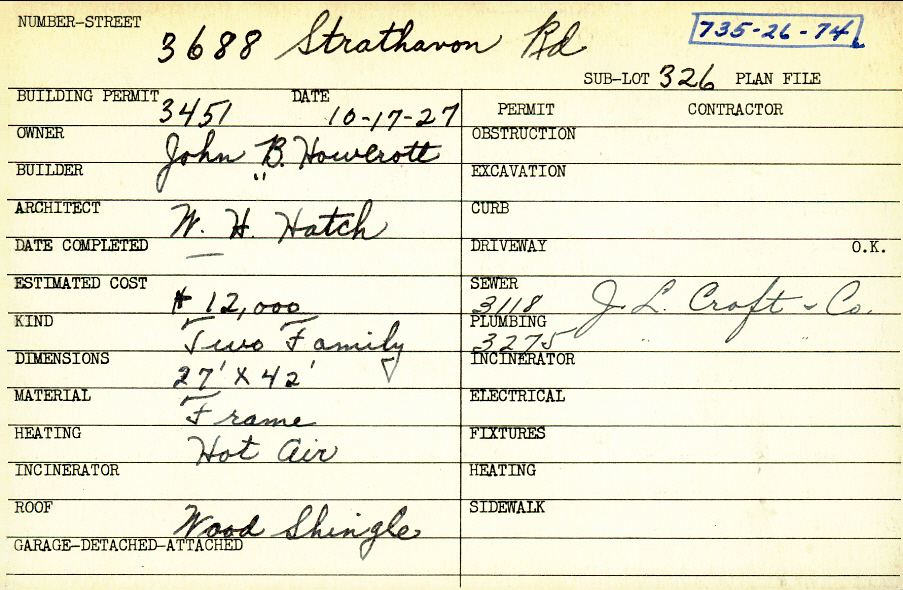 NUMBER-STREET 3688 Strathavon Rd 735-26-74
SUB-LOT 326 PLAN FILE
BUILDING PERMIT 3451 DATE 10-17-27
PERMIT CONTRACTOR
OWNER John B. Howcrott
OBSTRUCTION
BUILDER "
EXCAVATION
ARCHITECT W. H. Hatch
CURB
DATE COMPLETED —
DRIVEWAY O.K.
ESTIMATED COST $ 12,000
SEWER 3118 J. L. Croft & Co.
KIND Two Family
PLUMBING 3275 " "
DIMENSIONS 27' X 42'
INCINERATOR
MATERIAL Frame
ELECTRICAL
HEATING Hot Air
FIXTURES
INCINERATOR
HEATING
ROOF Wood Shingle
SIDEWALK
GARAGE-DETACHED-ATTACHED